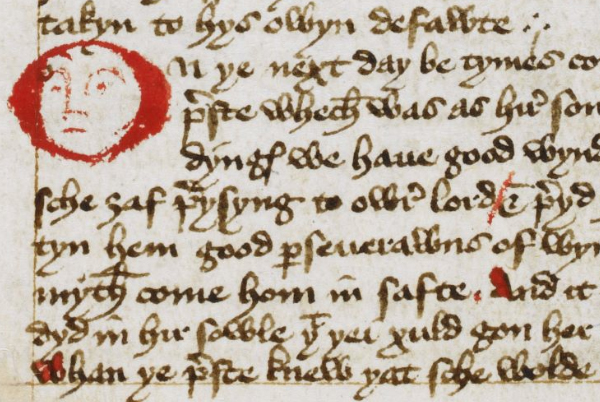 takyn to hys owyn defawte
On ye next day be tymes co
p̄ste whech was as hir son
dyngꝭ we haue good wynd
sche ȝaf p̄ysyng to owr̄ lord & p̄yd
tyn hem good pseuerawns of wyn
myth come hom in safte. And it
dyd in hir sowle yͭ yei xuld gon her
whan ye p̄ste knew yat sche wolde